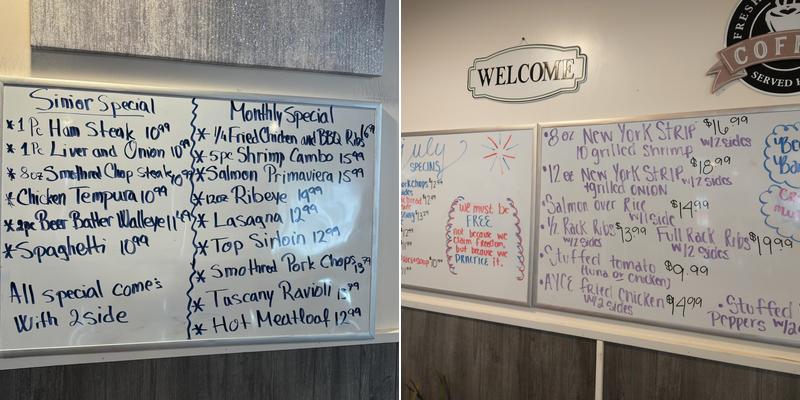 Sinior Special
* 1 Pc Ham Steak 10⁹⁹
* 1 Pc Liver and Onion 10⁹⁹
* 8oz Smothred Chop Steak 10⁹⁹
* Chicken Tempura 10⁹⁹
* 2pc Beer Batter Walleye 11⁹⁹
* Spaghetti 10⁹⁹
All special come's
With 2side
Monthly Special
* 1/4 Fried Chicken and BBQ Ribs 16⁹⁹
* 5pc Shrimp Combo 15⁹⁹
* Salmon Primavera 15⁹⁹
* 12oz Ribeye 19⁹⁹
* Lasagna 12⁹⁹
* Top Sirloin 12⁹⁹
* Smothred Pork Chops 13⁹⁹
* Tuscany Ravioli 15⁹⁹
* Hot Meatloaf 12⁹⁹
WELCOME
FRESH
COFF
SERVED H
July
SPECIALS
We must be
FREE
not because we
claim freedom,
but because we
PRACTICE it.
• 8 oz New York Strip $16.99
w/2 sides
10 grilled shrimp
• 12 oz New York Strip $18.99
+grilled onion w/2 sides
• Salmon over Rice $14.99
w/1 side
• 1/2 Rack Ribs $13.99 Full Rack Ribs $19.99
w/2 sides w/2 sides
• Stuffed tomato $9.99
(tuna or chicken)
• AYCE fried chicken $14.99
w/2 sides
• Stuffed
Peppers w/2